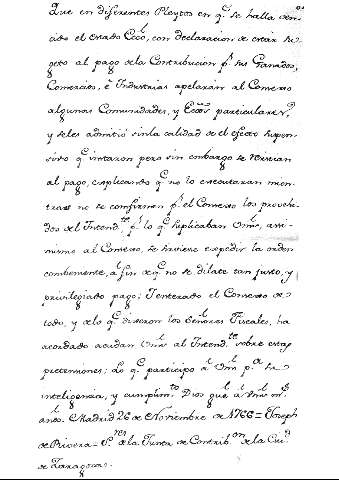 Que en diferentes Pleytos en q.e se halla con-
ado el estado Ecco, con declaracion de estar su-
geto al pago de la Contribucion p.r sus Ganados,
Comercios, è Industrias apelaron al Consejo
algunas Comunidades, y Eccos particulares,
y se les admitió sin la calidad de el efecto suspen-
sivo q.e intaron pero sin embargo se resisten
al pago, explicando q.e no lo executaran men-
tras no se confirmen p.r el Consejo los provehi-
dos de el Intend.te p.r lo q.e suplicaban Vms, assi-
mismo al Consejo, se sirviese expedir la orden
combeniente, à fin de q.e no se dilate tan justo, y
privilegiado pago; Y enterado el Consejo de
todo, y de lo q.e dixeron los Señores Fiscales, ha
acordado acudan Vms al Intend.te sobre estas
pretensiones: Lo q.e participo à Vms p.a su
inteligencia, y cumplim.to Dios gue à Vms m.s
años. Madrid 26 de Noviembre de 1766 = Joseph
de Rivera = S.res de la Junta de Contrib.on de la Ciu.d
de Zaragoza.